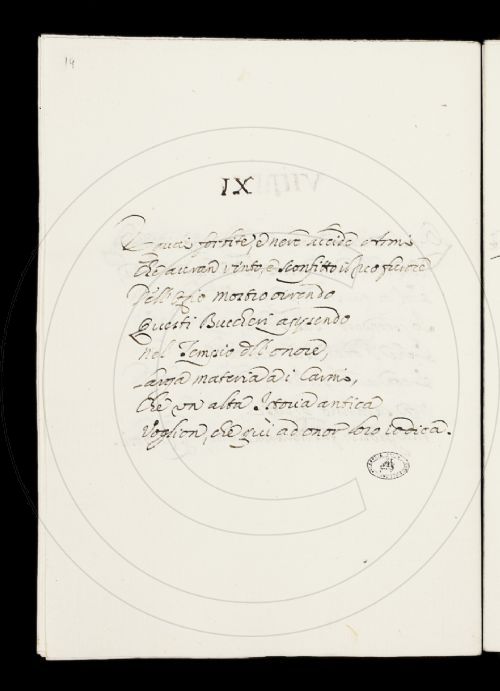 14
IX
E quei fortite, e nere accide
Che auran uinto, e sconfitto il suo furore
Dell' ozio mostro orrendo
Questi Buccieri appendo
nel Tempio dell' onore,
Larga materia a i Carmi,
Che un' alta Istoria antica
Voglion, che qui ad onor loro io dica.